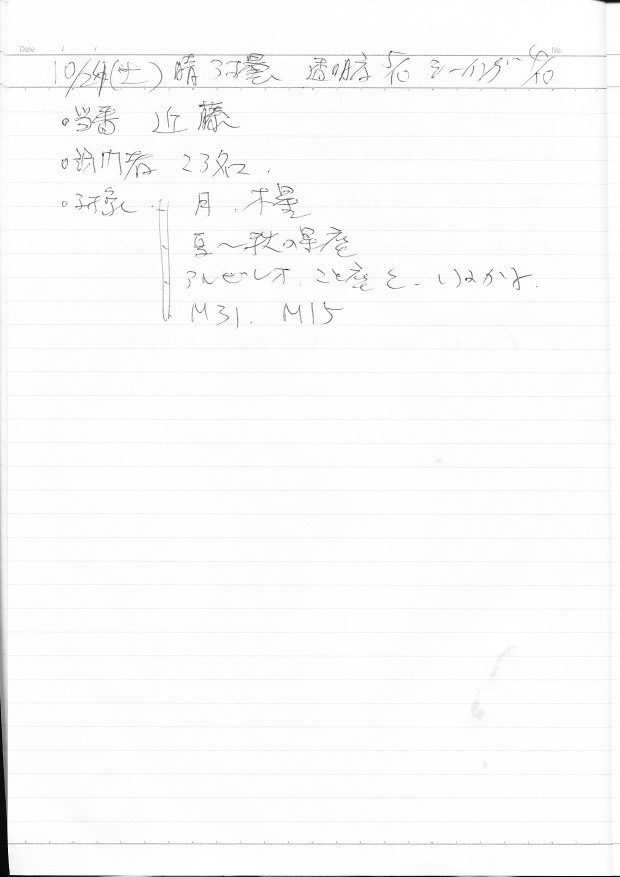 Date / / No.
10/24(土) 晴 うす曇 透明度 5/10 シーイング 6/10
・当番 近藤
・訪問者 23名.
・対象 月. 木星
夏〜秋の星座
アルビレオ. こと座ε. いるかγ.
M31. M15